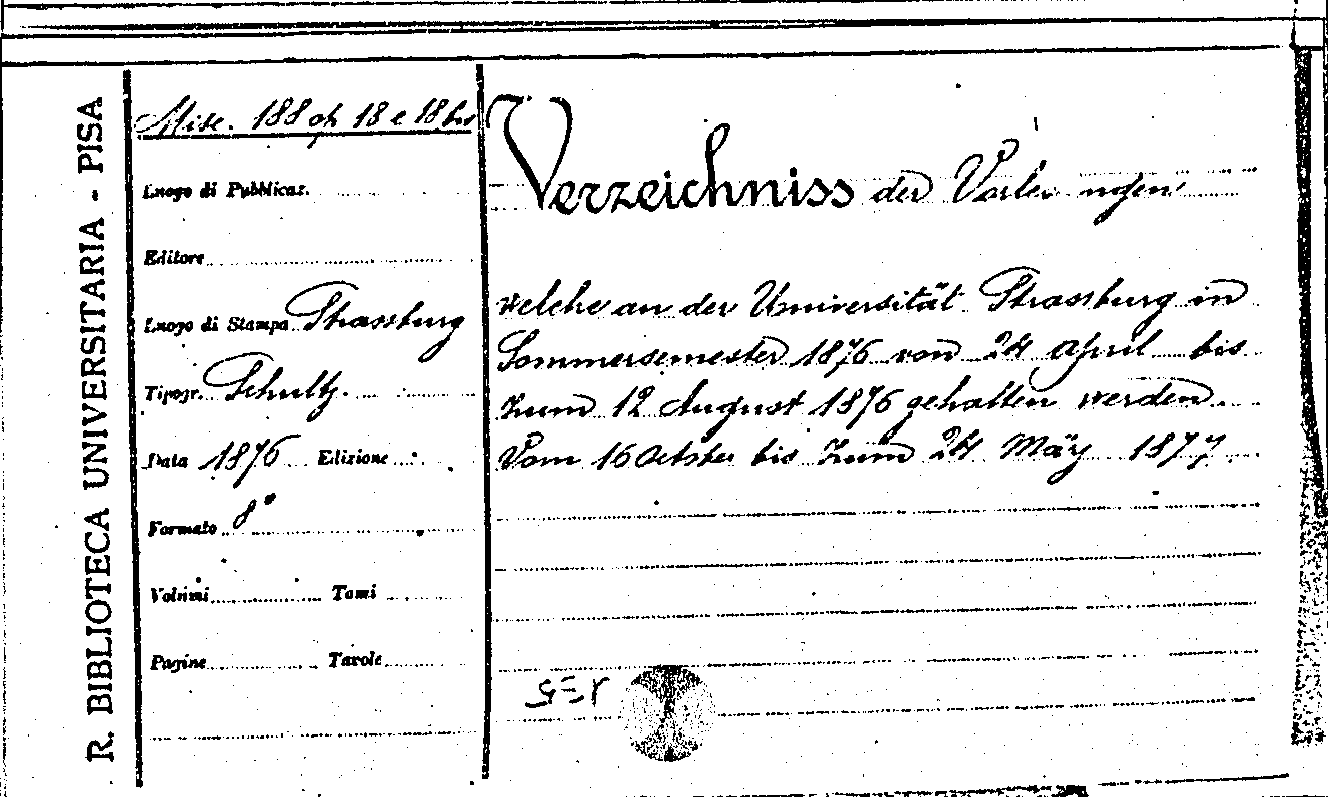 R. BIBLIOTECA UNIVERSITARIA - PISA
Misc. 188 op 18 e 18 bis
Luogo di Pubblicaz.
Editore
Luogo di Stampa Strassburg
Tipogr. Schultz.
Data 1876 Edizione
Formato 8°
Volumi Tomi
Pagine Tavole
Verzeichniss der Vorlesungen
welche an der Universität Strassburg in
Sommersemester 1876 von 24 April bis
zum 12 August 1876 gehalten werden.
Vom 16 October bis zum 24 März 1877